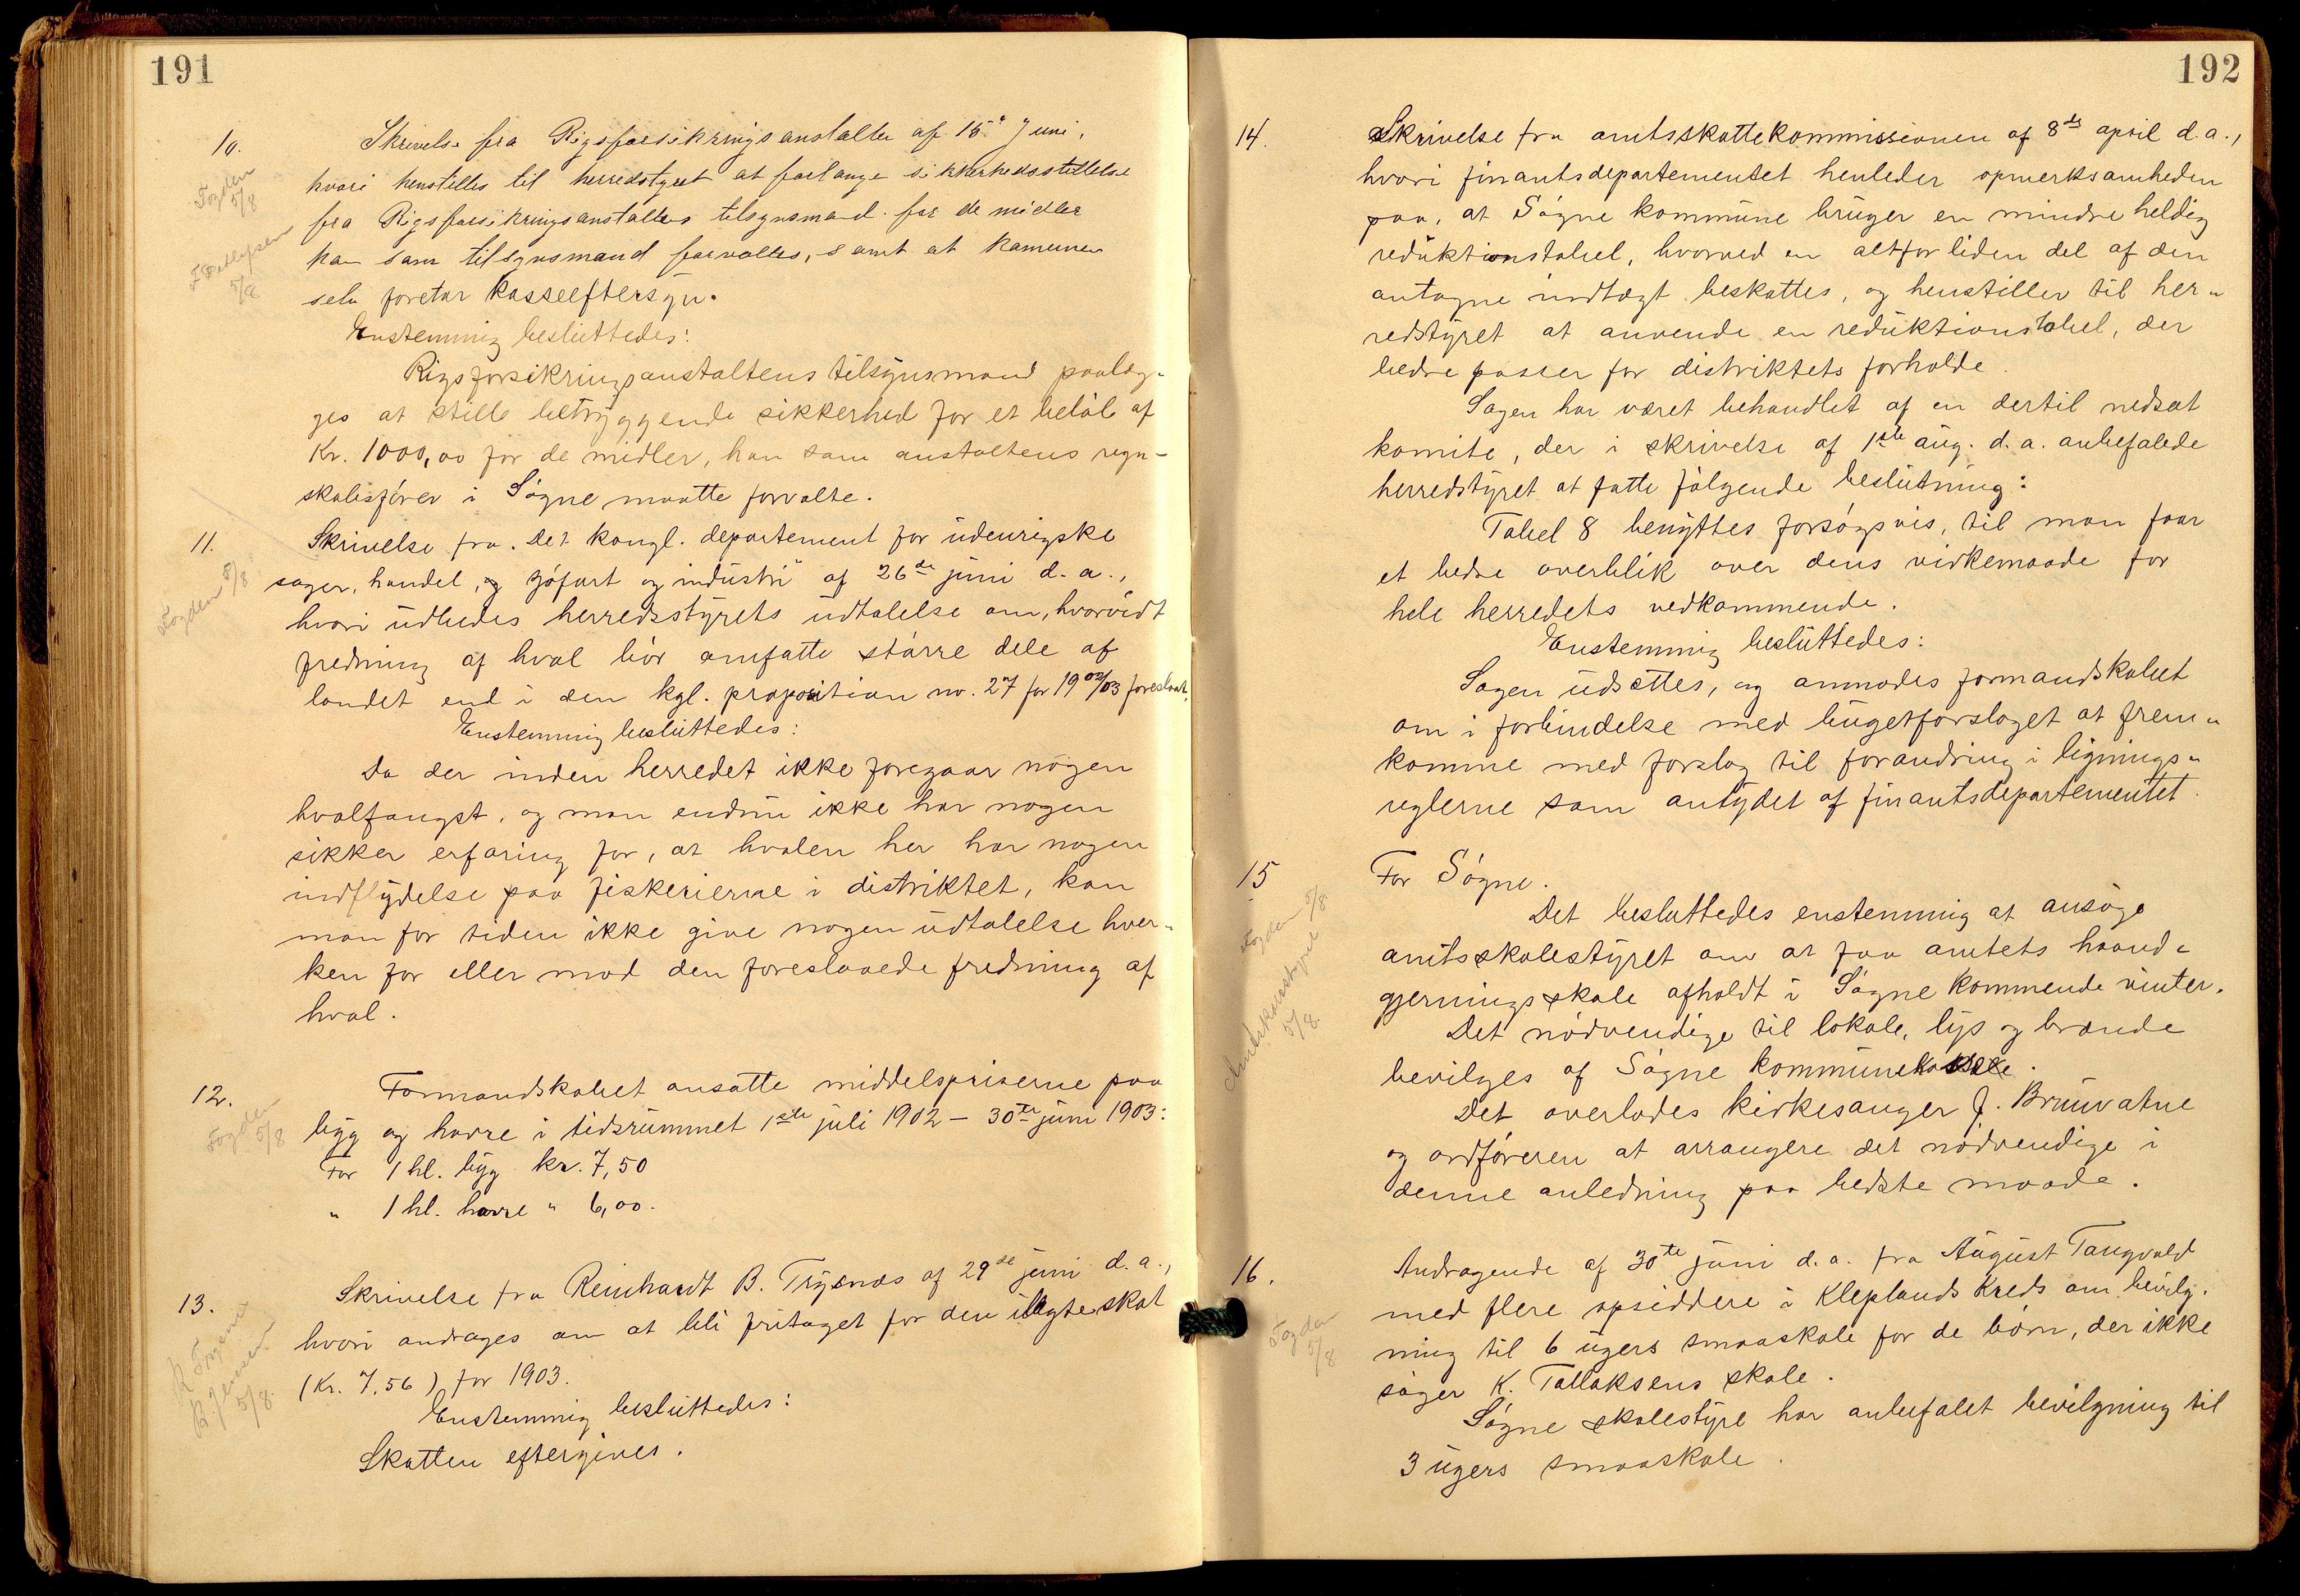 191
10.
Fogden
5/8
5/8
Skrivelse fra Rigsforsikringsanstalten af 15de Juni,
hvori henstilles til herredstyret at forlange sikkerhedsstillelse
fra Rigsforsikringsanstaltens tilsynsmand for de midler
han som tilsynsmand forvalter, samt at kommunen
selv foretar kasseeftersyn.
Enstemmig besluttedes:
Rigsforsikringsanstaltens tilsynsmand paalæg-
ges at stille betryggende sikkerhed for et beløb af
Kr. 1000,00 for de midler, han som anstaltens regn-
skabsfører i Søgne maatte forvalte.
11.
Fogden 5/8
Skrivelse fra "Det kongl. departement for udenrigske
sager, handel, og sjøfart og industri" af 26de juni d.a.,
hvori udbedes herredsstyrets udtalelse om, hvorvidt
fredning af hval bør omfatte større dele af
landet end i den kgl. proposition no. 27 for 1902/03 foreslaat.
Enstemmig besluttedes:
Da der inden herredet ikke foregaar nogen
hvalfangst, og man endnu ikke har nogen
sikker erfaring for, at hvalen her har nogen
indflydelse paa fiskerierne i distriktet, kan
man for tiden ikke give nogen udtalelse hver-
ken for eller mod den foreslaaede fredning af
hval.
12.
Fogden
5/8
Formandskabet ansatte middelspriserne paa
byg og havre i tidsrummet 1ste juli 1902 – 30te juni 1903:
For 1 hl. byg kr. 7,50
" 1 hl. havre " 6,00.
13.
R Trysnes
B. Jensen
5/8.
Skrivelse fra Reinhardt B. Trysnæs af 29de juni d.a.,
hvori andrages om at bli fritaget for den ilagte skat
(Kr. 7,56) for 1903.
Enstemmig besluttedes:
Skatten eftergives.
192
14.
Skrivelse fra amtsskattekommissionen af 8de april d.a.,
hvori finantsdepartementet henleder opmerksamheden
paa, at Søgne kommune bruger en mindre heldig
reduktionstabel, hvorved en altfor liden del af den
antagne indtægt beskattes, og henstiller til her-
redstyret at anvende en reduktionstabel, der
bedre passer for distriktets forholde.
Sagen har været behandlet af en dertil nedsat
komite, der i skrivelse af 1ste aug. d.a. anbefalede
herredstyret at fatte følgende beslutning:
Tabel 8 benyttes forsøgsvis, til man faar
et bedre overblik over dens virkemaade for
hele herredets vedkommende.
Enstemmig besluttedes:
Sagen udsættes, og anmodes formandskabet
om i forbindelse med bugetforslaget at frem-
komme med forslag til forandring i lignings-
reglerne som antydet af finantsdepartementet.
15
Fogden 5/8
Amtsskolestyret
5/8.
For Søgne.
Det besluttedes enstemmig at ansøge
amtsskolestyret om at faa amtets haand-
gjerningsskole afholdt i Søgne kommende vinter.
Det nødvendige til lokale, lys og brænde
bevilges af Søgne kommunekasse.
Det overlades kirkesanger J. Brunvatne
og ordføreren at arrangere det nødvendige i
denne anledning paa bedste maade.
16.
Fogden
5/8
Andragende af 30te juni d.a. fra August Tangvald
med flere opsiddere i Kleplands Kreds om bevilg-
ning til 6 ugers smaaskole for de børn, der ikke
søger K. Tallaksens skole.
Søgne skolestyre har anbefalet bevilgning til
3 ugers smaaskole.